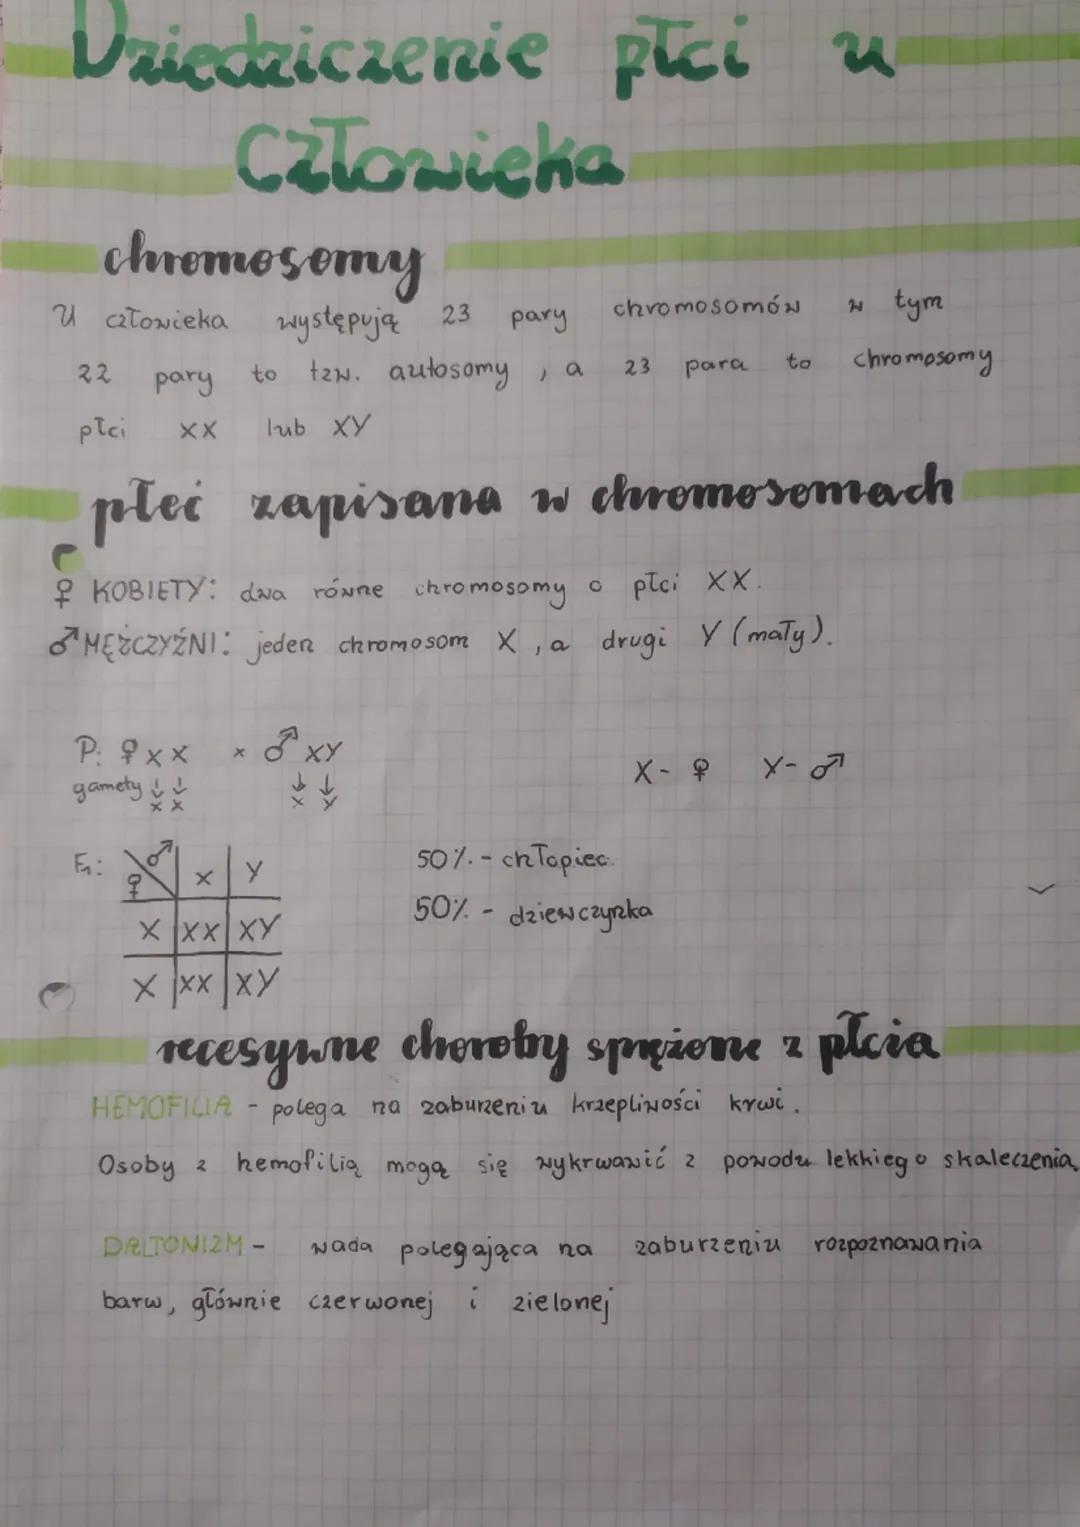 Dziedziczenie płci u
Człowieka
chromosomy
U człowieka występują 23 pary chromosomów w tym
22 pary to tzw. autosomy, a 23 para to chromosomy
płci XX lub XY
płeć zapisana w chromosomach
♀ KOBIETY: dwa równe chromosomy o płci XX.
♂ MĘŻCZYŹNI: jeden chromosom X, a drugi Y (mały).
P: ♀ XX × ♂ XY
gamety ↓ ↓ ↓ ↓
X X X Y
X - ♀ Y - ♂
F₁: ♂ X Y
♀
X XX XY
X XX XY
50% - chłopiec.
50% - dziewczynka
recesywne choroby sprężone z płcia
HEMOFILIA - polega na zaburzeniu krzepliwości krwi.
Osoby z hemofilią mogą się wykrwawić z powodu lekkiego skaleczenia,
DALTONIZM - wada polegająca na zaburzeniu rozpoznawania
barw, głównie czerwonej i zielonej